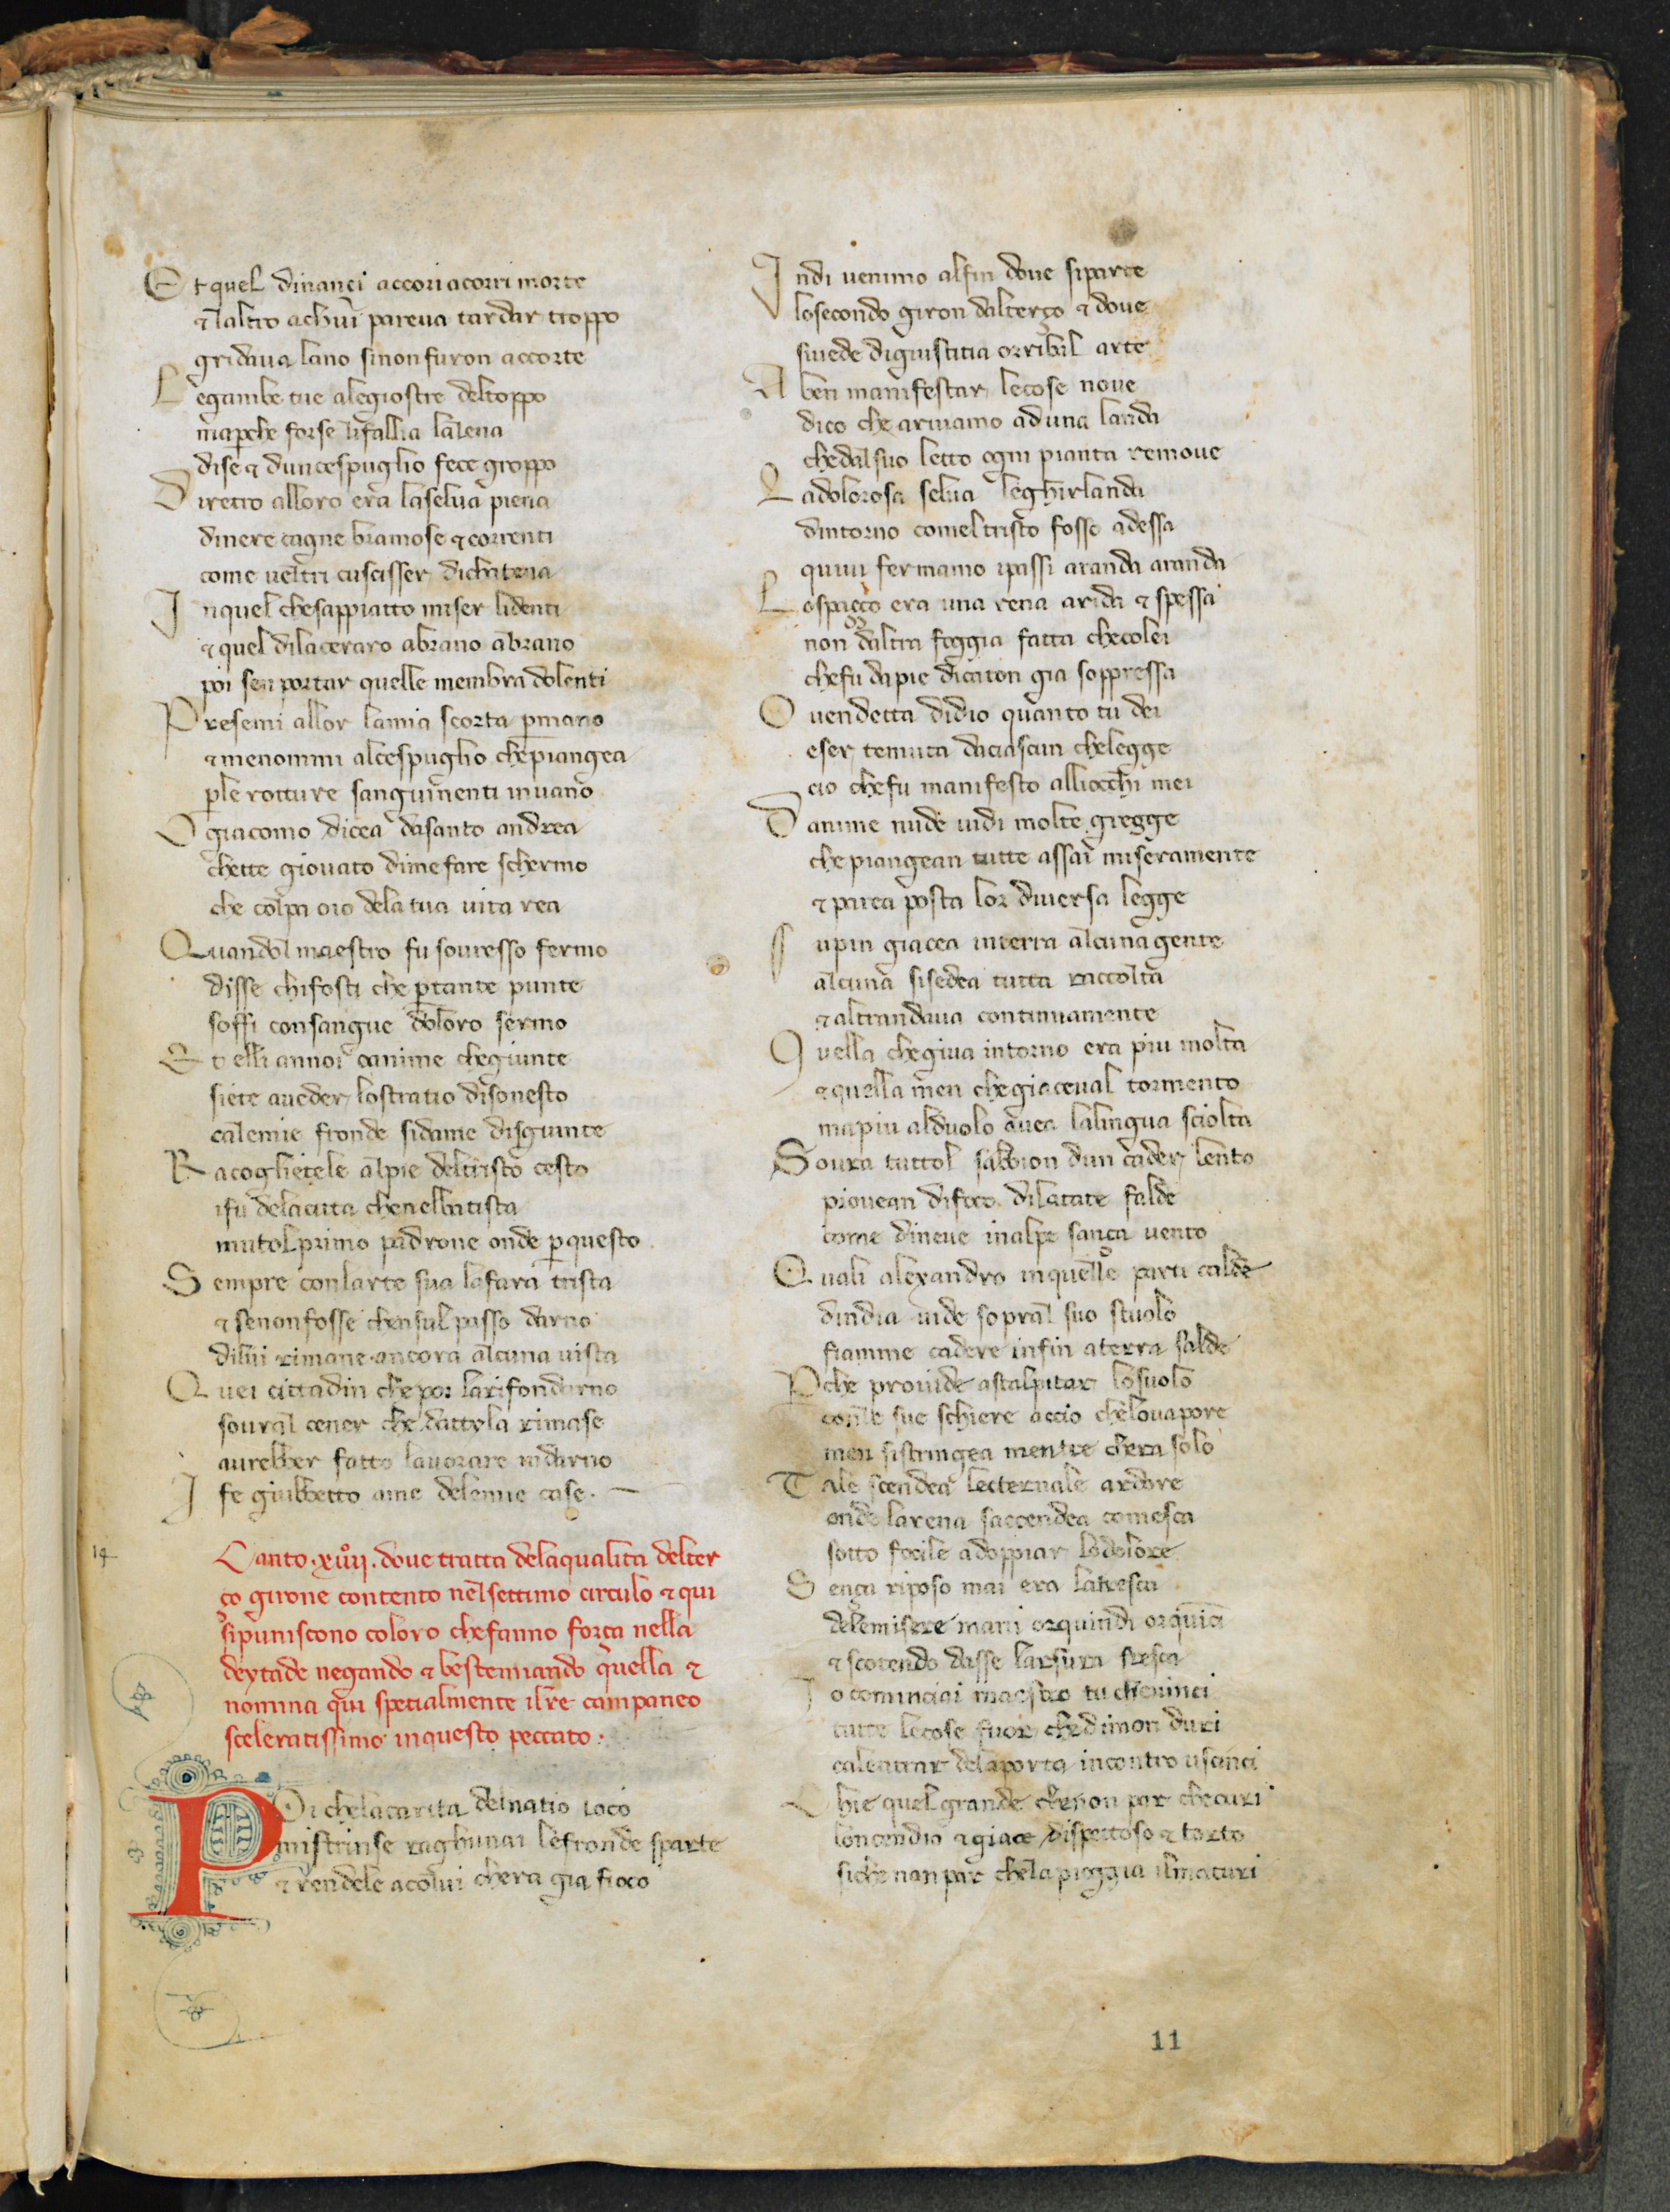 Et quel dinanci accorri acorri morte
⁊ laltro achui pareua tardar troppo
gridaua lano sinon furon accorte
Legambe tue alegiostre deltoppo
ma ꝑche forse li fallia lalena
dise ⁊ duncespuglio fece groppo
Diretro alloro era laselua piena
dinere cagne bramose ⁊ correnti
come ueltri cuscisser dichatena
Inquel chesappiatto miser lidenti
⁊ quel dilaceraro abrano abrano
poi sen portar quelle membra dolenti
Presemi allor lamia scorta ꝑmano
⁊ menommi alcespuglio chepiangea
ꝑle rotture sanguinenti inuano
O giacomo dicea dasanto andrea
chette giouato dime fare schermo
che colpa oio dela tua uita rea
Quandol maestro fu souresso fermo
disse chifosti che ꝑtante punte
soffi consangue doloro sermo
Et elli annoi oanime chegiunte
siete aueder lostratio disonesto
calemie fronde sidame disgiunte
Racoglietele alpie deltristo cesto
ifu delacitta chenelbatista
mutol primo padrone onde ꝑquesto
Sempre conlarte sua lafara trista
⁊ senonfosse chensul passo darno
dilui rimane ancora alcuna uista
Quei cittadin che poi larifondarno
soural cener che dattyla rimase
aurebber fatto lauorare indarno
I fe giubbetto ame delemie case.
14
Canto .xiiij. doue tratta delaqualita delter
ço girone contento nelsettimo circulo ⁊ qui
sipuniscono coloro chefanno força nella
deytade negando ⁊ bestemiando quella ⁊
nomina qui spetialmente ilre campaneo
sceleratissimo inquesto peccato:
POi chelacarita delnatio loco
mistrinse raghunai lefronde sparte
⁊ rendele acolui chera gia fioco
Indi uenimo alfin doue siparte
losecondo giron dalterço ⁊ doue
siuede digiustitia orribil arte
A ben manifestar lecose noue
dico che ariuamo ad una landa
chedal suo letto ogni pianta remoue
Ladolorosa selua leghirlanda
dintorno comel tristo fosso adessa
quiui fermamo ipassi aranda aranda
Lospaçço era una rena arida ⁊ spessa
non daltra foggia fatta checolei
chefu dapie dicaton gia soppressa
O uendetta didio quanto tu dei
eser temuta daciascun chelegge
cio chefu manifesto alliocchi mei
Danime nude uidi molte gregge
che piangean tutte assai miseramente
⁊ parea posta lor diuersa legge
Supin giacea interra alcuna gente
alcuna sisedea tutta raccolta
⁊ altrandaua continuamente
Quella chegiua intorno era piu molta
⁊ quella men chegiaceual tormento
mapiu alduolo auea lalingua sciolta
Soura tuttol sabbion dun cader lento
piouean difoco dilatate falde
come dineue inalpe sança uento
Quali alexandro inquelle parti calde
dindia uide sopral suo stuolo
fiamme cadere infin aterra salde
Pche prouide ascalpitar losuolo
conle sue schiere accio chelouapore
men sistringea mentre chera solo
Tale scendea letternale ardore
onde larena saccendea comesca
sotto focile adoppiar lodolore
Sença riposo mai era latresca
delemisere mani orquindi orquici
⁊ scotendo dasse larsura fresca
Io cominciai maestro tu cheuinci
tutte lecose fuor che dimon duri
calentrar delaporta incontro uscinci
Chie quel grande chenon par checuri
loncendio ⁊ giace dispettoso ⁊ torto
siche nonpar chela pioggia ilmaturi
11